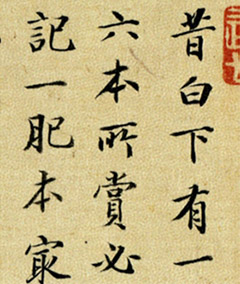 昔白下有一
六本所賞必
記一肥本㝡